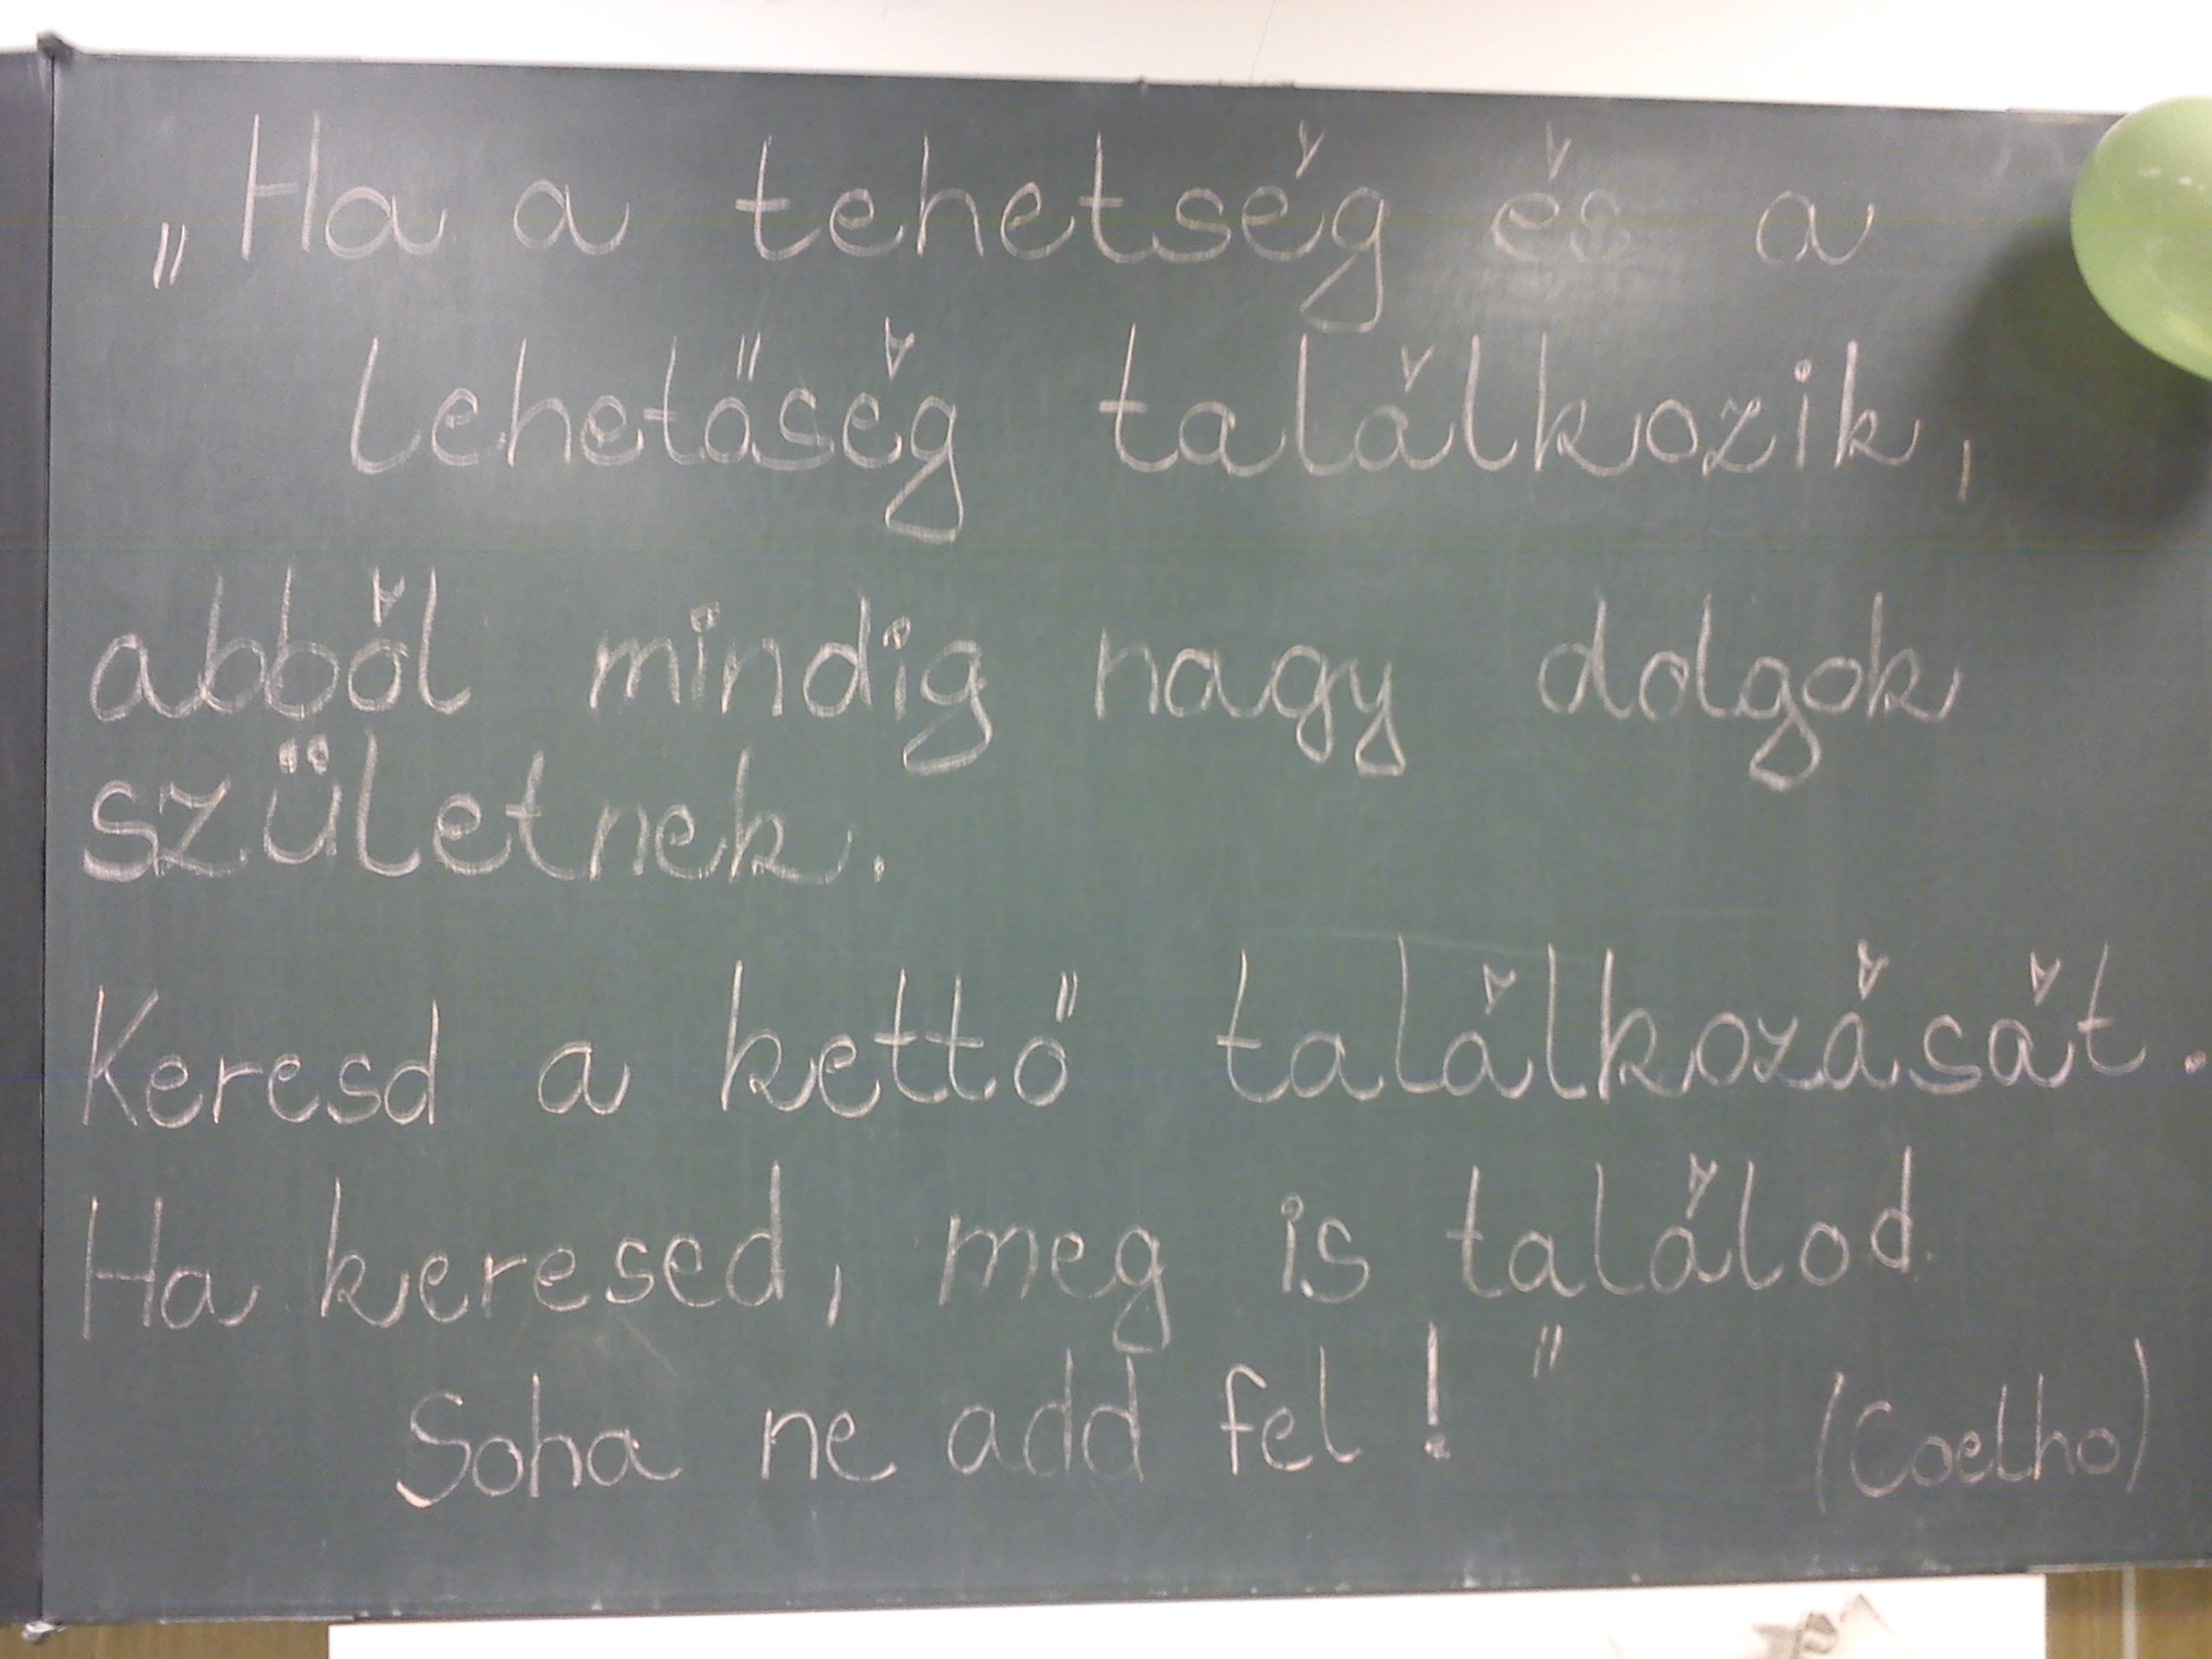 „Ha a tehetség és a
lehetőség találkozik,
abból mindig nagy dolgok
születnek.
Keresd a kettő találkozását.
Ha keresed, meg is találod.
Soha ne add fel!" (Coelho)